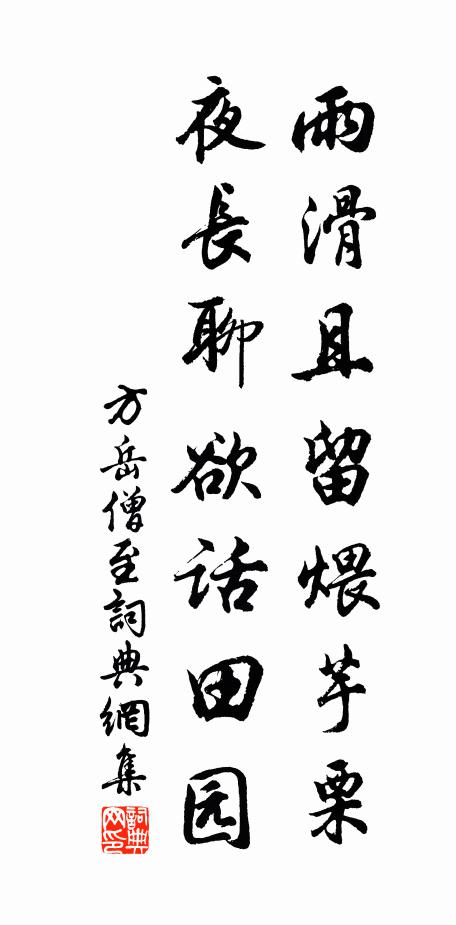 雨滑且留煨芋栗
夜長聊欲话田园
方岳僧至詞典網集
詞典网印